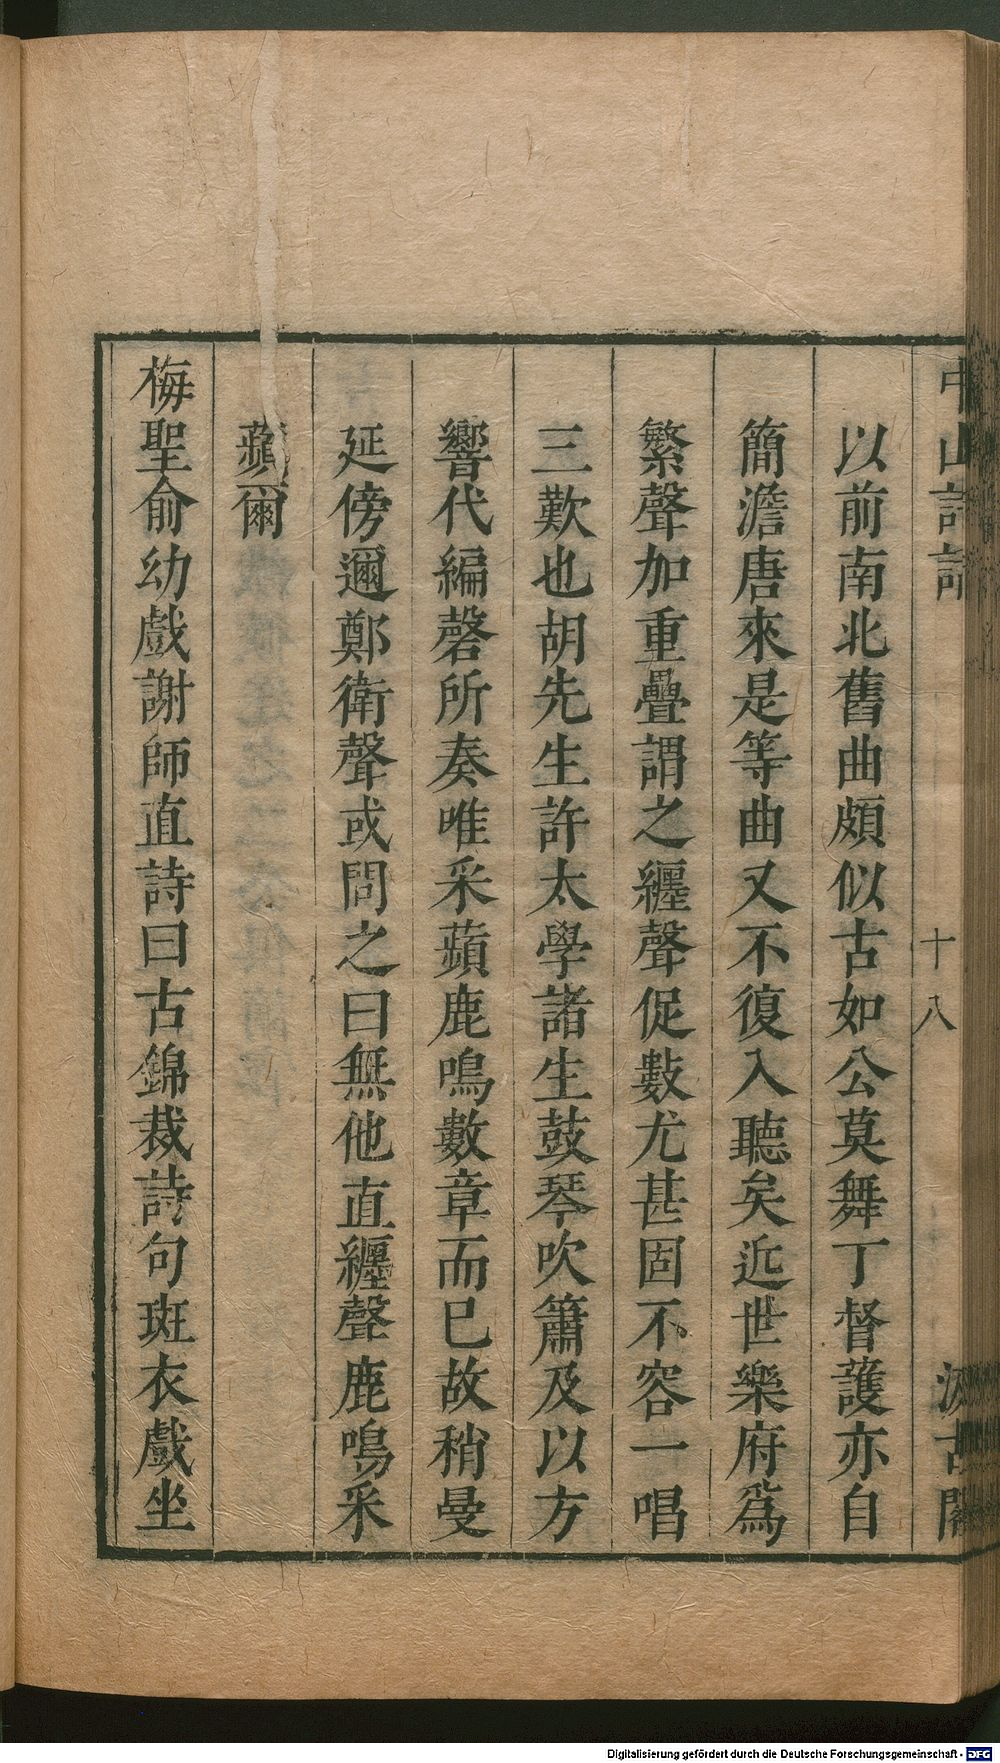 中山詩話
十八
汲古閣
以前南北舊曲頗似古如公莫舞丁督護亦自
簡澹唐來是等曲又不復入聽矣近世樂府爲
繁聲加重疊謂之纏聲促數尤甚固不容一唱
三歎也胡先生許太學諸生鼓琴吹簫及以方
響代編磬所奏唯采蘋鹿鳴數章而已故稍曼
延傍邇鄭衛聲或問之曰無他直纏聲鹿鳴采
蘋爾
梅聖俞幼戲謝師直詩曰古錦裁詩句斑衣戲坐
Digitalisierung gefördert durch die Deutsche Forschungsgemeinschaft - DFG